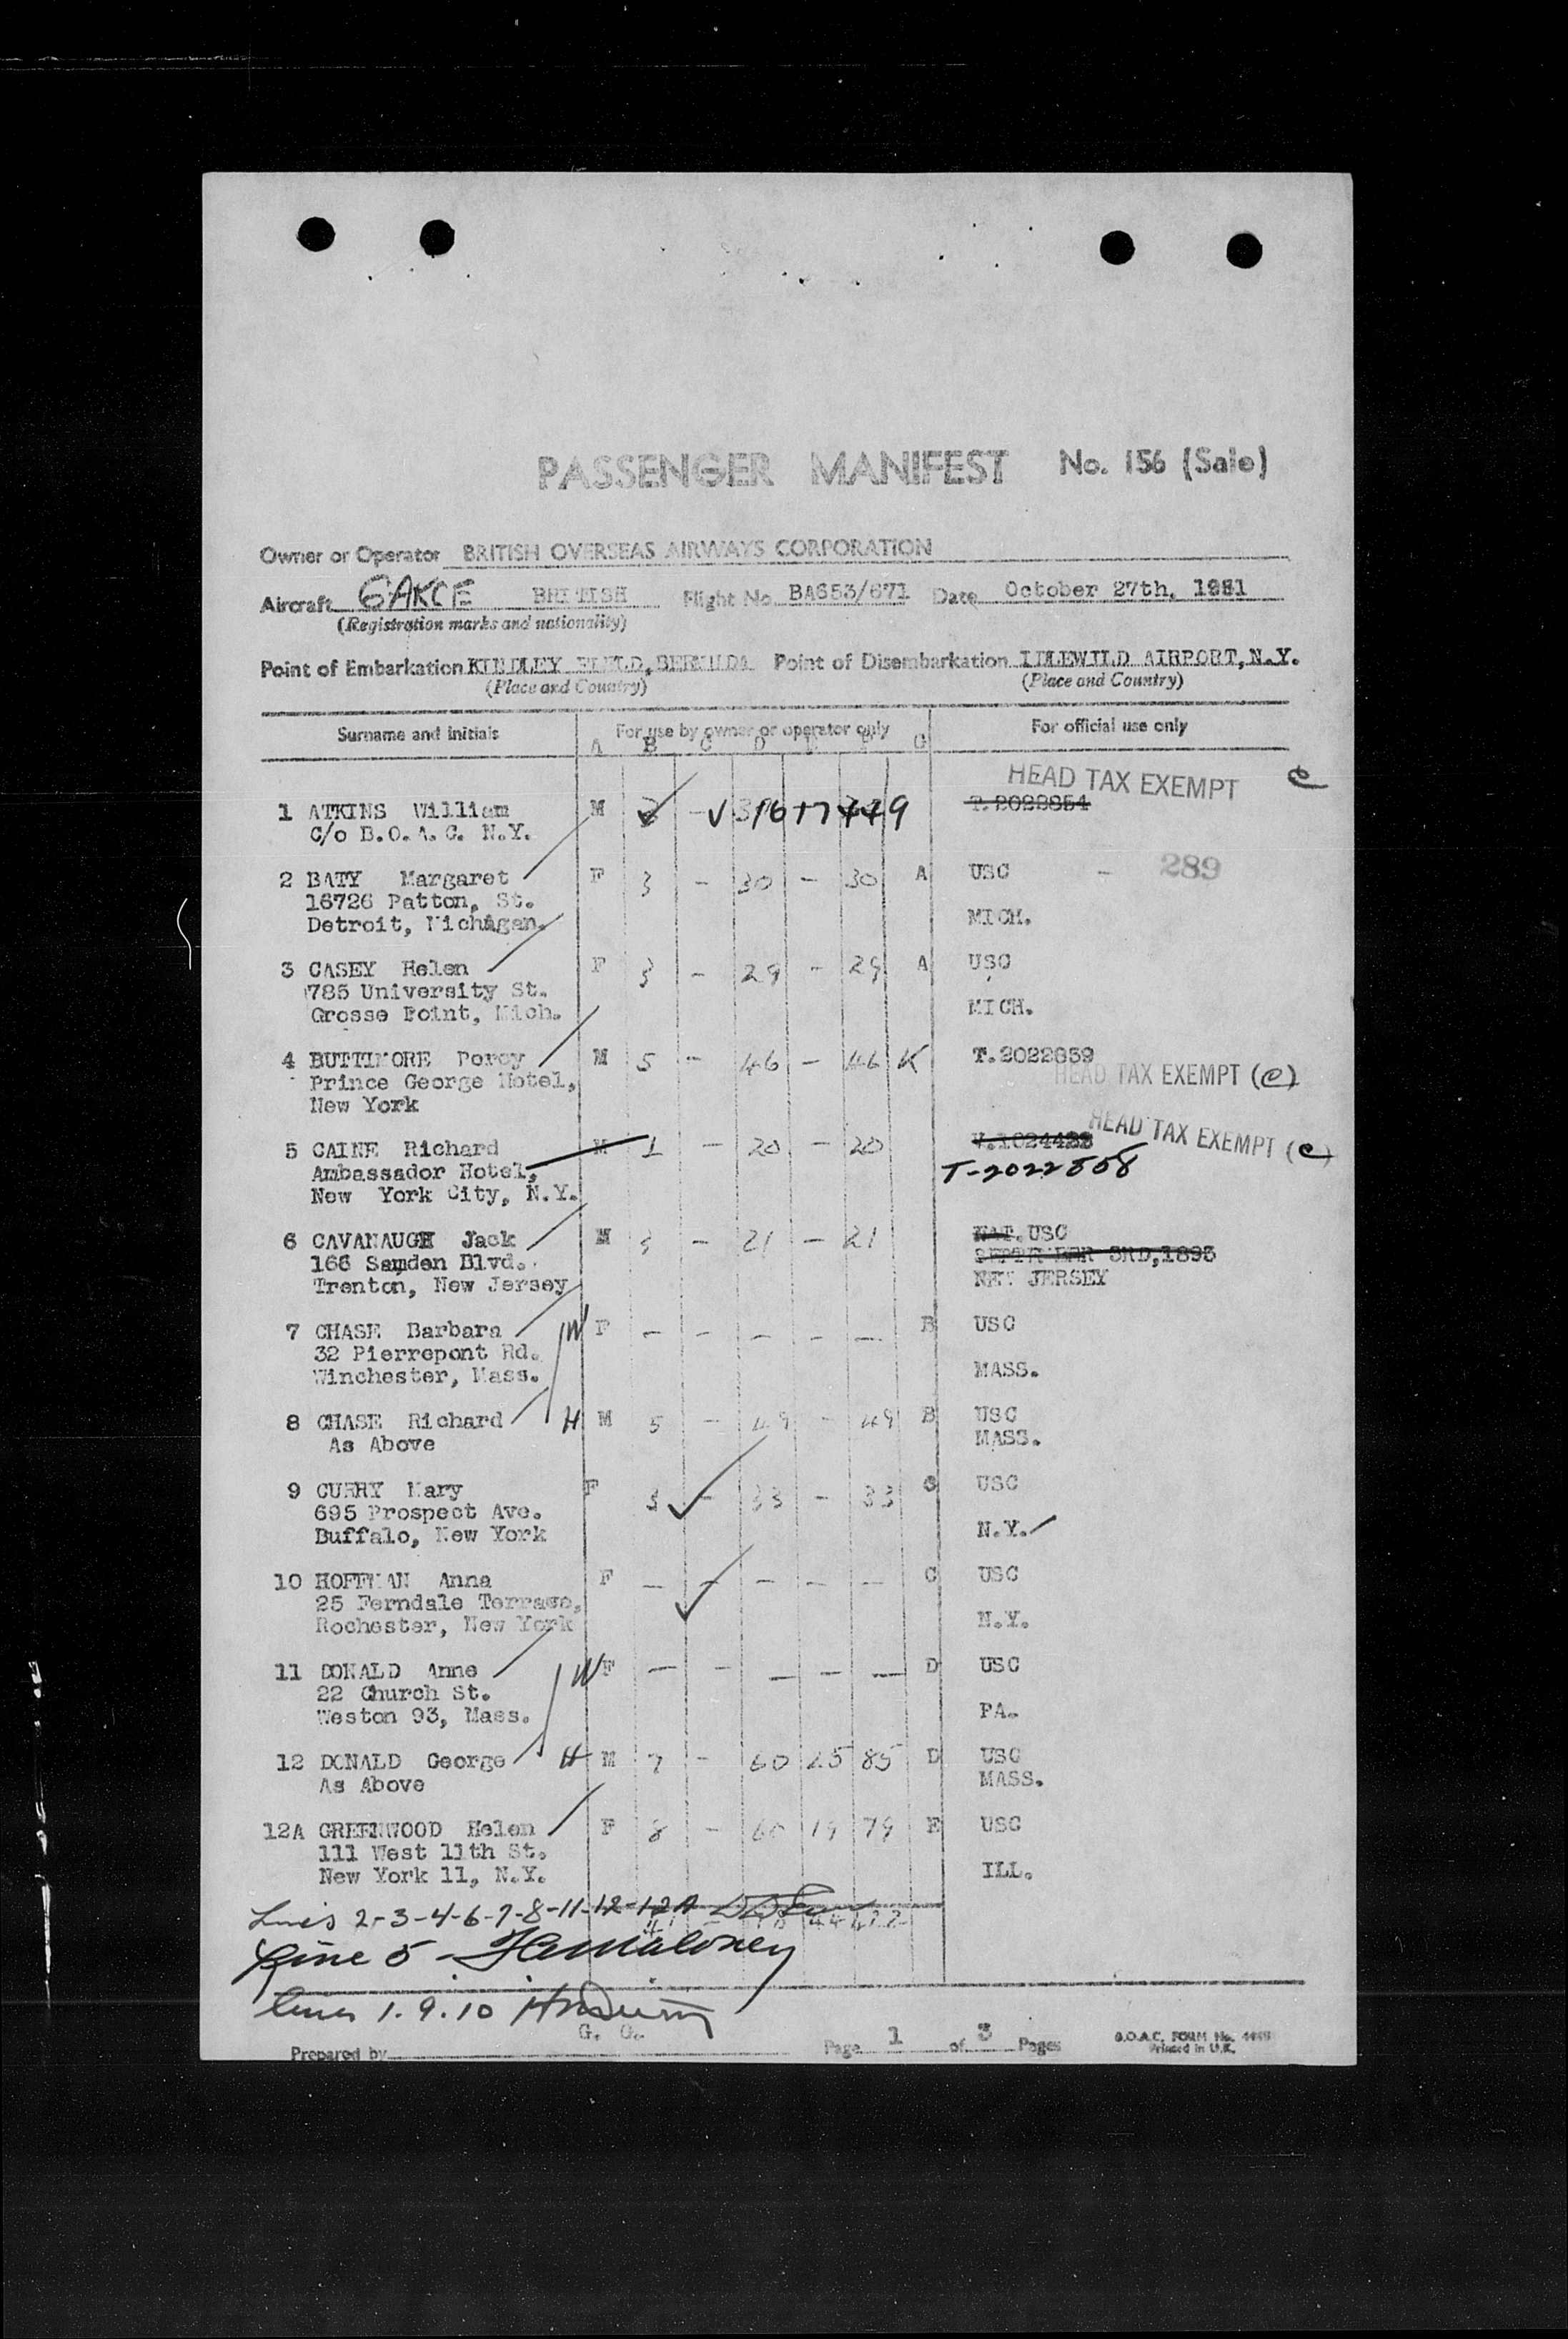 PASSENGER MANIFEST No. 156 (Sale)
Owner or Operator BRITISH OVERSEAS AIRWAYS CORPORATION
Aircraft GAKCE BRITISH Flight No BA653/671 Date October 27th, 1951
(Registration marks and nationality)
Point of Embarkation KINDLEY FIELD, BERMUDA Point of Disembarkation IDLEWILD AIRPORT, N.Y.
(Place and Country) (Place and Country)
Surname and initials For use by owner or operator only For official use only
A B C D E F G
HEAD TAX EXEMPT e
1 ATKINS William M T.2022854
C/o B.O.A.C. N.Y.
2 BATY Margaret F 3 - 30 - 30 A USC - 289
16726 Patton, St.
Detroit, Michigan. MICH.
3 CASEY Helen F 3 - 29 - 29 A USC
785 University St.
Grosse Point, Mich. MICH.
4 BUTTIMORE Percy M 5 - 46 - 46 K T.2022859
Prince George Hotel, HEAD TAX EXEMPT (e)
New York
5 CAINE Richard M 1 - 20 - 20 V.1024428 HEAD TAX EXEMPT (e)
Ambassador Hotel, T-2022858
New York City, N.Y.
6 CAVANAUGH Jack M 3 - 21 - 21 NAT. USC
166 Samden Blvd. SEPTEMBER 3RD, 1895
Trenton, New Jersey NEW JERSEY
7 CHASE Barbara W F - - - - - B USC
32 Pierrepont Rd.
Winchester, Mass. MASS.
8 CHASE Richard H M 5 - 49 - 49 B USC
As Above MASS.
9 CURRY Mary F 3 - 33 - 33 C USC
695 Prospect Ave.
Buffalo, New York N.Y.
10 HOFFMAN Anna F - - - - - C USC
25 Ferndale Terrace,
Rochester, New York N.Y.
11 DONALD Anne W F - - - - - D USC
22 Church St.
Weston 93, Mass. PA.
12 DONALD George H M 7 - 60 25 85 D USC
As Above MASS.
12A GREENWOOD Helen F 8 - 60 19 79 E USC
111 West 11th St.
New York 11, N.Y. ILL.
Lines 2-3-4-6-7-8-11-12-12A
Line 5 - Maloney
Lines 1.9.10
Prepared by G. O. Page 1 of 3 Pages
B.O.A.C. FORM No.
Printed in U.K.